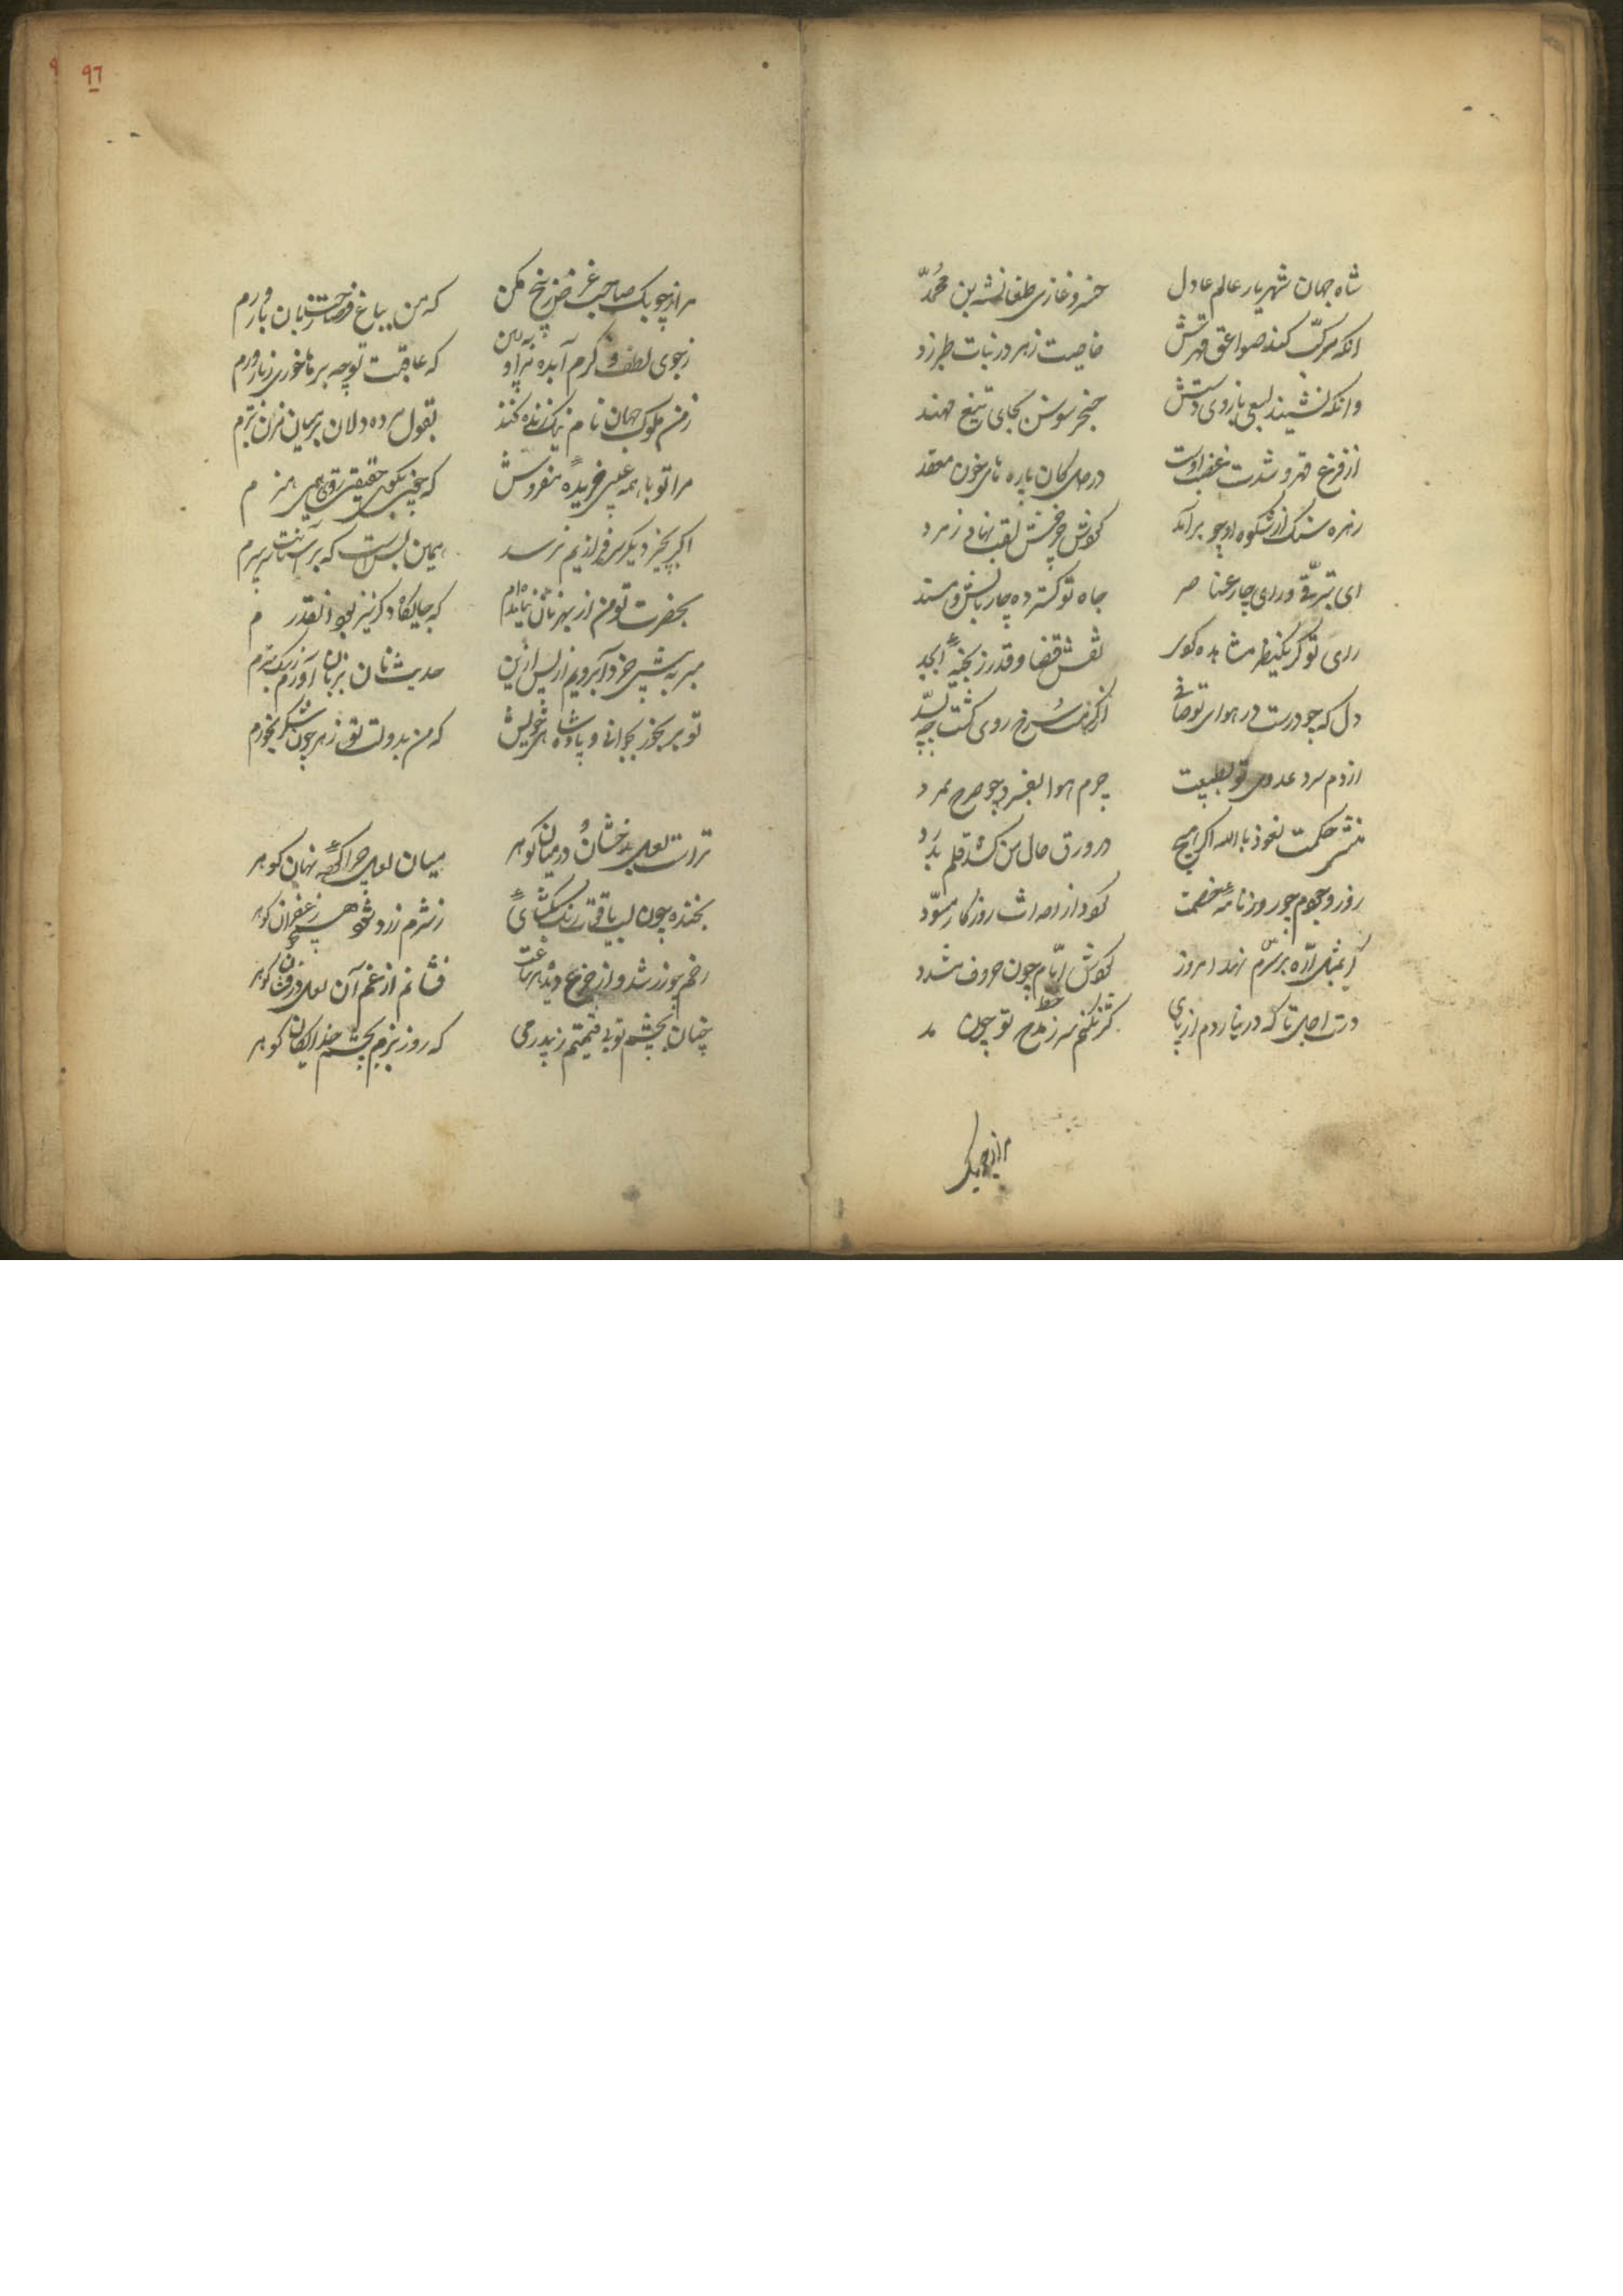 شاه جهان شهریار عالم عادل خسرو غازی طغانشه بن محمد
آنکه مرکب کند صواعق قهرش خاصیت زهر در نبات طبرزد
وانکه نشیند بسعی بازوی خنجر سوسن بجای تیغ مهند
از فزع قهر و شدت غضب اوست در دل کان پاره های خون معقد
زهره سنگ از شکوه او چو برآمد کونش لقب نهاد زمرد
ای بترقی ورای چار عناصر جاه تو گسترده چار بالش و مسند
رای تو گر بنگرد مشاهده کوی نقش قضا و قدر ز تخته ابجد
دل که چو درست در هوای تو صافی سرخ روی گشت
از دم سرد عدوی تو بطبیعت جرم هوا بفسرد چو صرح ممرد
منشی حکمت نعوذ بالله اگر هیچ در ورق حال من کشد قلم رد
روز وجودم چو روزنامه خصمت گردد از احداث روزگار مسود
گر بمثل اره بر سرم نهد امروز گردش ایام چون حروف مشدد
دست اجل تا که در نیاردم از پای کژ نکنم سر ز خط مدح تو چون مد
مرا چو یک
٩٦
مرا چو یک صاحب غرض ز بیخ مکن که من بباغ فصاحت زبان بارورم
ز جوی لطف و کرم آب ده مرا و ببین که عاقبت تو چه برها خوری ز بار و برم
ز من ملوک جهان نام نیک زنده کنند بقول مرده دلان بر میان مزن تبرم
مرا تو با همه عیبی خریده مفروش که هنرم
اگر بچیز دیگر سرفرازیم نرسد همین بس است که بر آستانت پی سپرم
بحضرت تو من از بهر نان نیامده ام که جایگاه دگر نیز بود آنقدرم
مبر به پیش خود آبرویم از پس ازین حدیث نان بزبان آورم ز سگ بترم
تو بر بخور بجوانی و پادشاهی خویش که من بدولت تو زهر چون شکر بخورم
تراست لعل بدخشان و در میان گوهر میان لعل چرا کرده نهان گوهر
بخنده چون لب یاقوت رنگ بگشایی ز شرم زرد شود همچو زعفران گوهر
رخم چو زر شد و از جزع دیده هر ساعت فشانم از غم آن لعل درفشان گوهر
چنان بچشم تو بی قیمتم ز بی درمی که روز بزم بچشم خدایگان گوهر